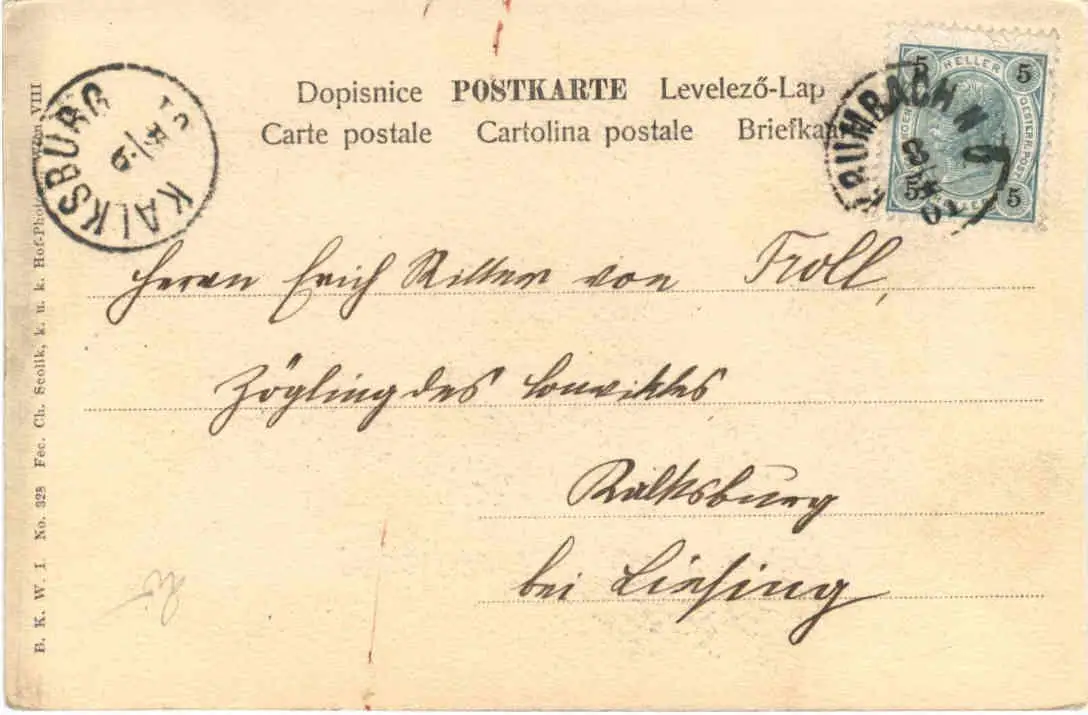 Dopisnice POSTKARTE Levelező-Lap
Carte postale Cartolina postale Briefkaa
KALKSBURG
KRUMBACH N
5 HELLER 5
OESTERR. POST
5 5
Herrn Erich Ritter von Troll,
Zögling des Conviktes
Kalksburg
bei Liesing
B. K. W. I. No. 328 Fec. Ch. Scolik, k. u. k. Hof-Phot. Wien VIII